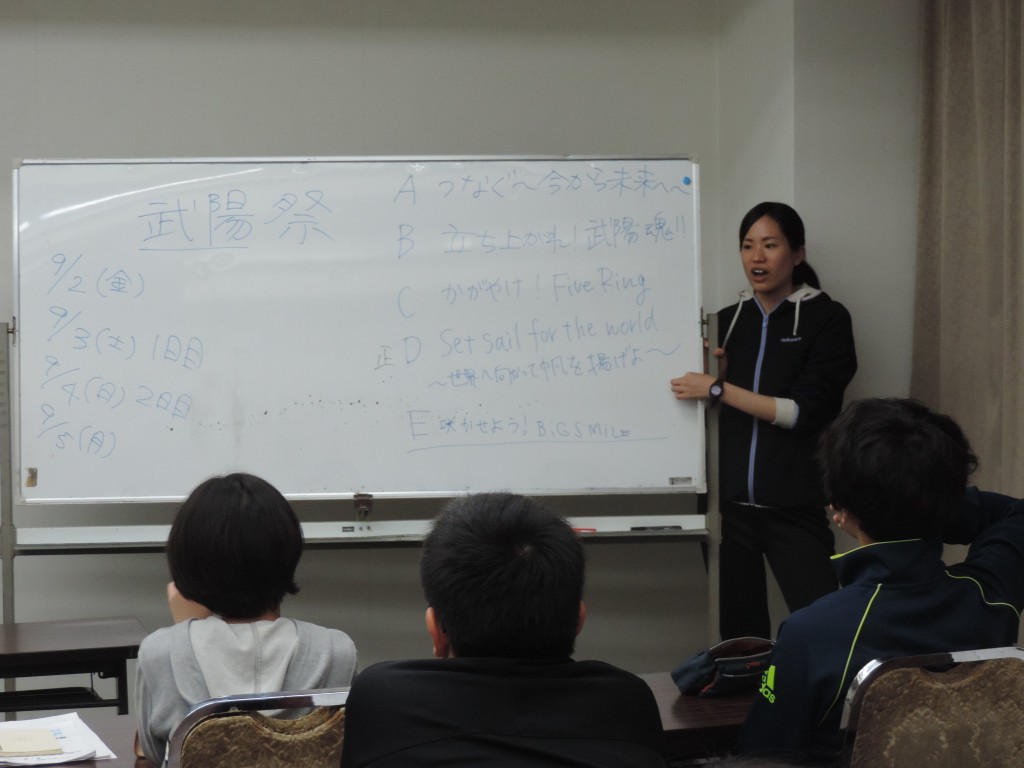 武陽祭
9/2(金)
9/3(土) 1日目
9/4(日) 2日目
9/5(月)
A つなぐ〜今から未来へ〜
B 立ち上がれ!武陽魂!!
C かがやけ! Five Ring
正 D Set sail for the world
〜世界へ向かって帆を揚げよ〜
E 咲かせよう! B.G SMILE
adidas